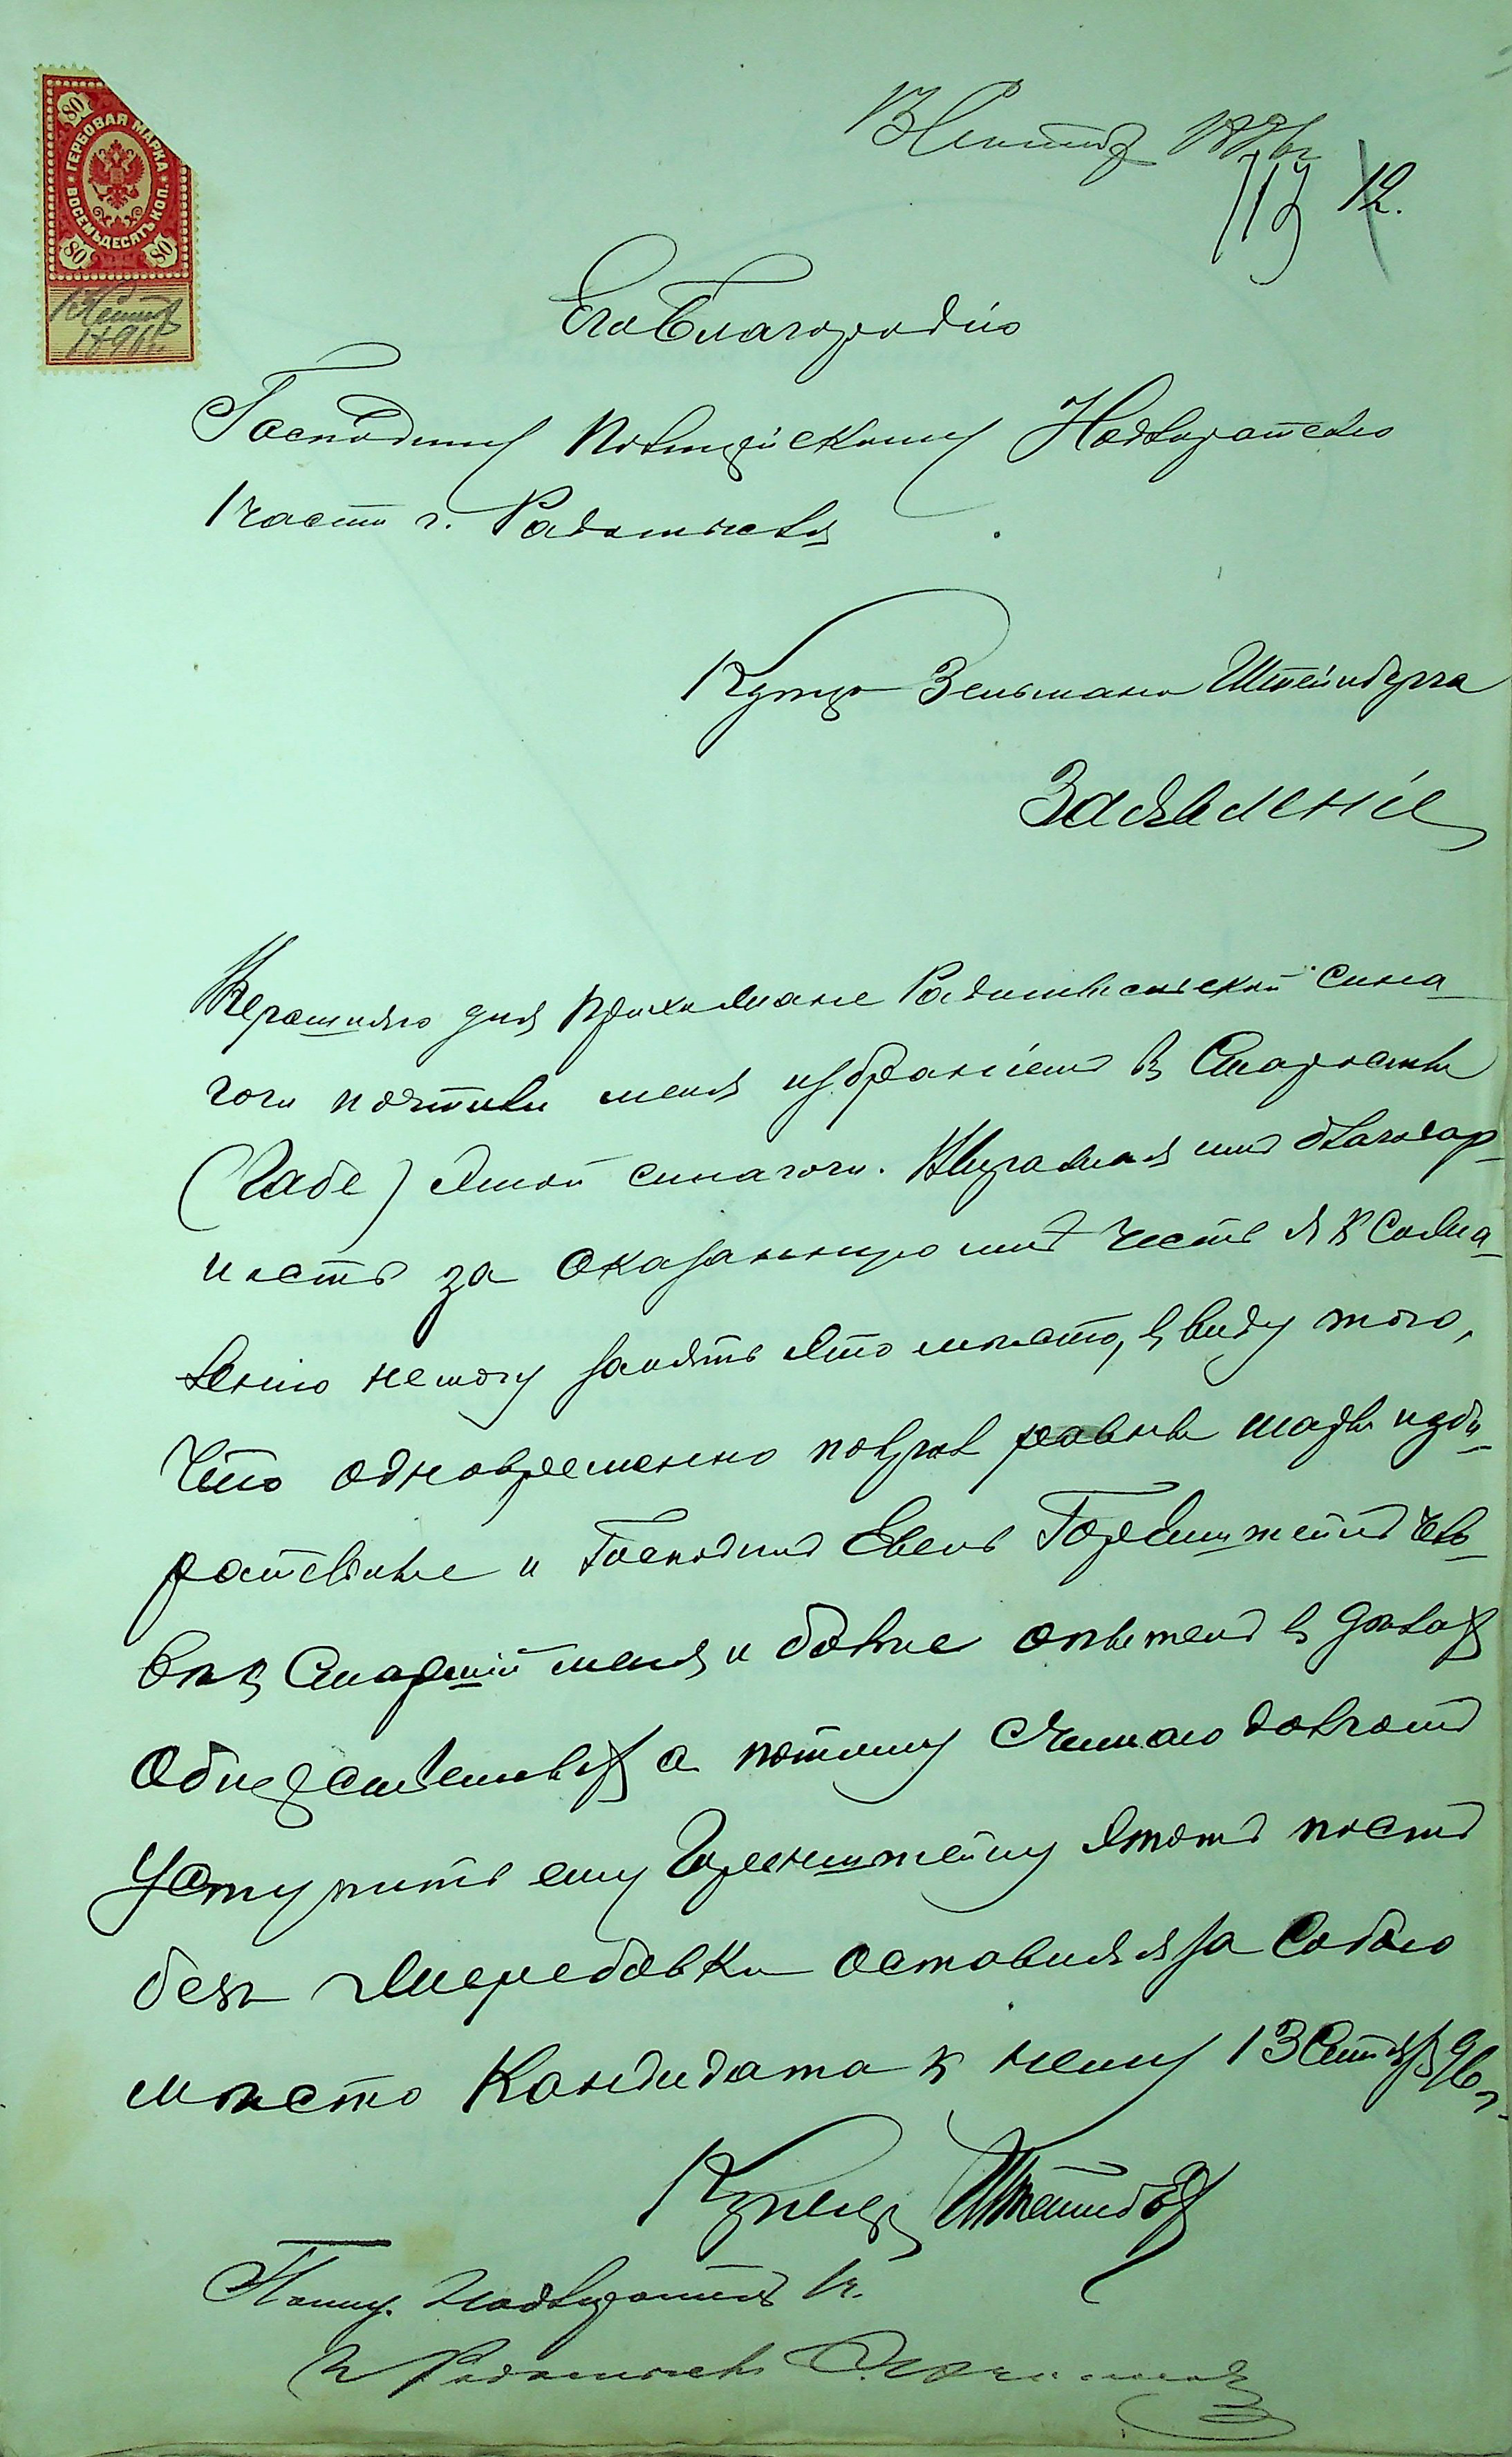 80
ГЕРБОВАЯ МАРКА
ВОСЕМЬДЕСЯТЪ КОП.
80 80
13 Сентяб
1896 г.
13 Сентяб 1896 г
713 12.
Его Благородію
Господину Полицейскому Надзирателю
1 части г. Радомысля
Купца Зельмана Штейнберга
Заявленіе
Вчерашняго дня прихожане Радомысльской сина-
гоги почтили меня избраніемъ въ Старосты
(Габе) этой синагоги. Выражая имъ благодар-
ность за оказанную мнѣ честь я к сожа-
лению немогу занять это мѣсто, в виду того,
Что одновременно получил равные шары изби-
рательные и Господинъ Евель Горенштейнъ чело-
вѣкъ Старший меня и болѣе опытенъ в дѣлах
Общественных а потому Считаю долгомъ
Уступить ему Горенштейну этотъ постъ
без жеребовки оставляя за Собою
мѣсто Кандидата к нему 13 Сентяб 96 г.
Купец Штейнберг
Полиц. Надзиратель 1 ч.
г Радомысля